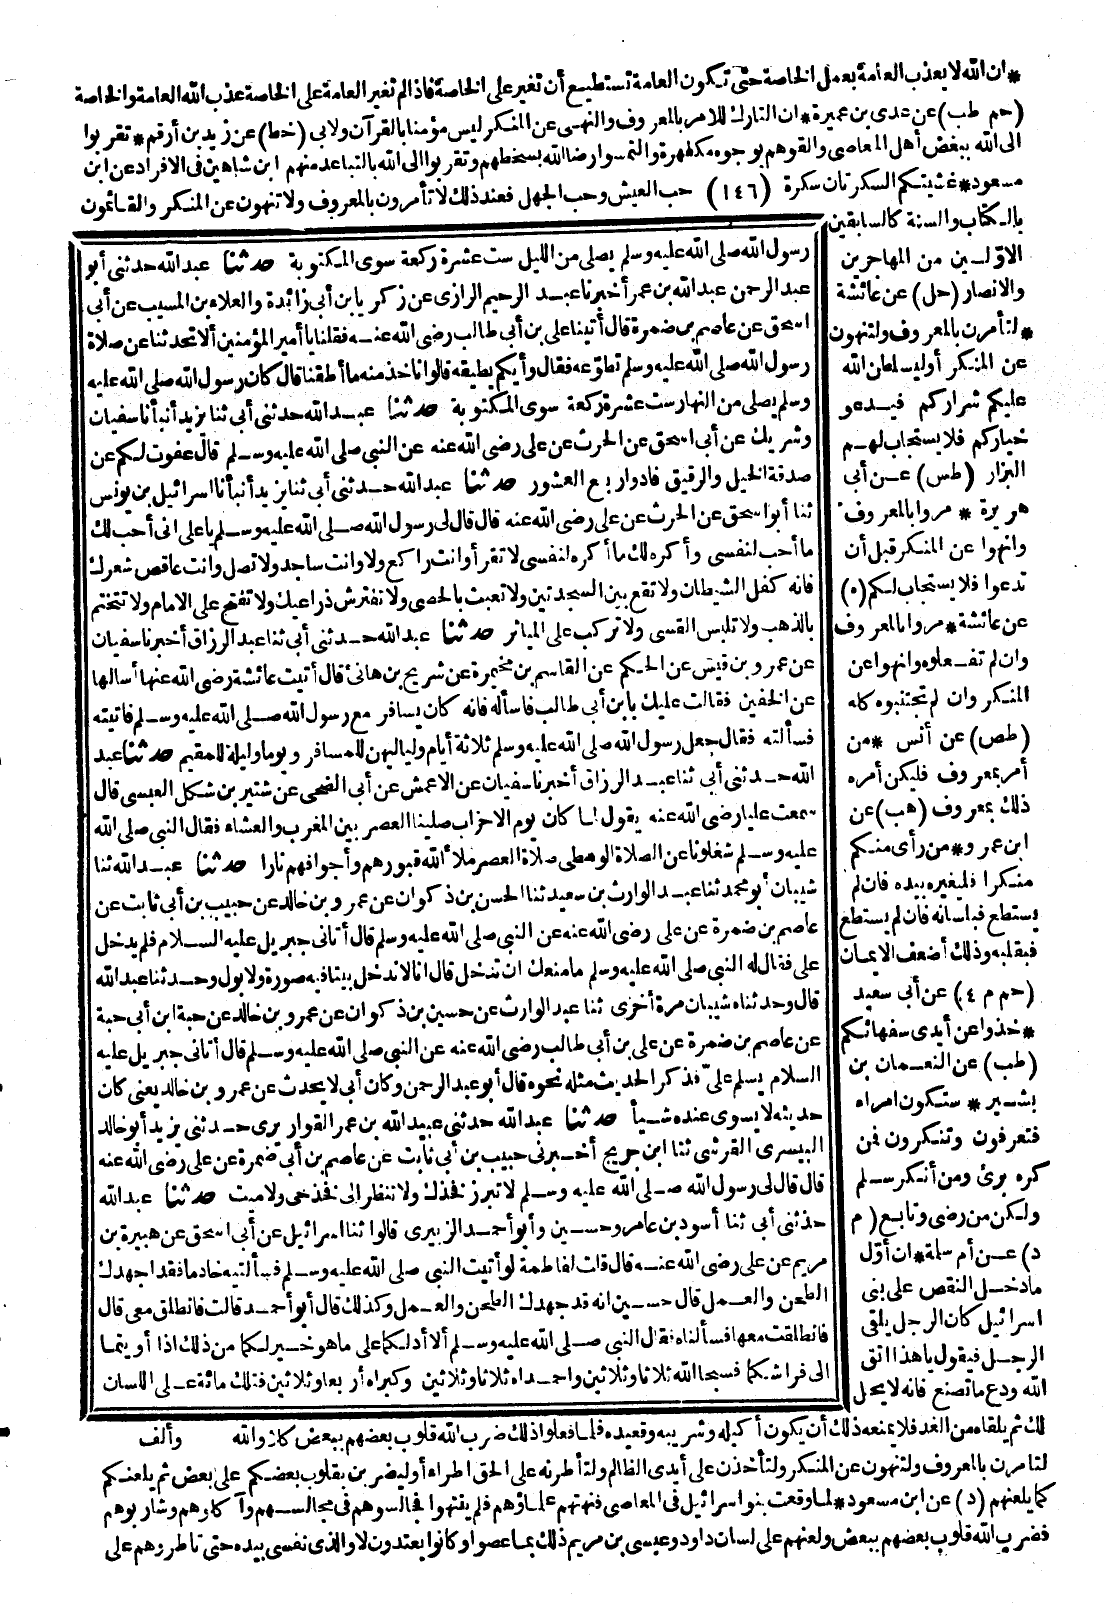 *ان الله لا يعذب العامة بعمل الخاصة حتى تكون العامة تستطيع أن تغير على الخاصة فاذا لم تغير العامة على الخاصة عذب الله العامة والخاصة
(حم طب) عن عدى بن عميرة * ان التارك للامر بالمعروف والنهى عن المنكر ليس مؤمنا بالقرآن ولا بى (خط) عن زيد بن أرقم * تقربوا
الى الله ببغض أهل المعاصى والقوهم بوجوه مكفهرة والتمسوا رضا الله بسخطهم وتقربوا الى الله بالتباعد منهم ابن شاهين فى الافراد عن ابن
مسعود * غشيتكم السكرتان سكرة (١٤٦) حب العيش وحب الجهل فعند ذلك لا تأمرون بالمعروف ولا تنهون عن المنكر والقائمون
بالكتاب والسنة كالسابقين
الاوّلين من المهاجرين
والانصار (حل) عن عائشة
* لتأمرن بالمعروف ولتنهون
عن المنكر أوليسلطن الله
عليكم شراركم فيدعو
خياركم فلا يستجاب لهم
البزار (طس) عن أبى
هريرة * مروا بالمعروف
وانهوا عن المنكر قبل أن
تدعوا فلا يستجاب لكم (ه)
عن عائشة * مروا بالمعروف
وان لم تفعلوه وانهوا عن
المنكر وان لم تجتنبوه كله
(طص) عن أنس * من
أمر بمعروف فليكن أمره
ذلك بمعروف (هب) عن
ابن عمرو * من رأى منكم
منكرا فليغيره بيده فان لم
يستطع فبلسانه فان لم يستطع
فبقلبه وذلك أضعف الايمان
(حم م ٤) عن أبى سعيد
* خذوا عن أيدى سفهائكم
(طب) عن النعمان بن
بشير * ستكون امراء
فتعرفون وتنكرون فمن
كره برئ ومن أنكر سلم
ولكن من رضى وتابع (م
د) عن أم سلمة * ان أوّل
ما دخل النقص على بنى
اسرائيل كان الرجل يلقى
الرجل فيقول يا هذا اتق
الله ودع ما تصنع فانه لا يحل
رسول الله صلى الله عليه وسلم يصلى من الليل ست عشرة ركعة سوى المكتوبة حدثنا عبد الله حدثنى أبو
عبد الرحمن عبد الله بن عمر أخبرنا عبد الرحيم الرازى عن زكريا بن أبى زائدة والعلاء بن المسيب عن أبى
اسحق عن عاصم بن ضمرة قال أتينا على بن أبى طالب رضى الله عنه فقلنا يا أمير المؤمنين ألا تحدثنا عن صلاة
رسول الله صلى الله عليه وسلم تطوّعه فقال وأيكم يطيقه قالوا ناخذ منه ما أطقنا قال كان رسول الله صلى الله عليه
وسلم يصلى من النهار ست عشرة ركعة سوى المكتوبة حدثنا عبد الله حدثنى أبى ثنا يزيد أنبأنا سفيان
وشريك عن أبى اسحق عن الحرث عن على رضى الله عنه عن النبى صلى الله عليه وسلم قال عفوت لكم عن
صدقة الخيل والرقيق فادوا ربع العشور حدثنا عبد الله حدثنى أبى ثنا يزيد أنبأنا اسرائيل بن يونس
ثنا أبو اسحق عن الحرث عن على رضى الله عنه قال قال لى رسول الله صلى الله عليه وسلم يا على انى أحب لك
ما أحب لنفسى وأكره لك ما أكره لنفسى لا تقرأ وانت راكع ولا وانت ساجد ولا تصل وانت عاقص شعرك
فانه كفل الشيطان ولا تقع بين السجدتين ولا تعبث بالحصى ولا تفترش ذراعيك ولا تفتح على الامام ولا تتختم
بالذهب ولا تلبس القسى ولا تركب على المياثر حدثنا عبد الله حدثنى أبى ثنا عبد الرزاق أخبرنا سفيان
عن عمرو بن قيس عن الحكم عن القاسم بن مخيمرة عن شريح بن هانئ قال أتيت عائشة رضى الله عنها أسالها
عن الخفين فقالت عليك بابن أبى طالب فاسأله فانه كان يسافر مع رسول الله صلى الله عليه وسلم فاتيته
فسألته فقال جعل رسول الله صلى الله عليه وسلم ثلاثة أيام ولياليهن للمسافر ويوما وليلة للمقيم حدثنا عبد
الله حدثنى أبى ثنا عبد الرزاق أخبرنا سفيان عن الاعمش عن أبى الضحى عن شتير بن شكل العبسى قال
سمعت عليا رضى الله عنه يقول لما كان يوم الاحزاب صلينا العصر بين المغرب والعشاء فقال النبى صلى الله
عليه وسلم شغلونا عن الصلاة الوسطى صلاة العصر ملأ الله قبورهم وأجوافهم نارا حدثنا عبد الله ثنا
شيبان أبو محمد ثنا عبد الوارث بن سعيد ثنا الحسن بن ذكوان عن عمرو بن خالد عن حبيب بن أبى ثابت عن
عاصم بن ضمرة عن على رضى الله عنه عن النبى صلى الله عليه وسلم قال أتانى جبريل عليه السلام فلم يدخل
على فقال له النبى صلى الله عليه وسلم ما منعك ان تدخل قال انا لا ندخل بيتا فيه صورة ولا بول وحدثنا عبد الله
قال وحدثناه شيبان مرة أخرى ثنا عبد الوارث عن حسين بن ذكوان عن عمرو بن خالد عن حبة ابن أبى حبة
عن عاصم بن ضمرة عن على بن أبى طالب رضى الله عنه عن النبى صلى الله عليه وسلم قال أتانى جبريل عليه
السلام يسلم علىّ فذكر الحديث مثله نحوه قال أبو عبد الرحمن وكان أبى لا يحدث عن عمرو بن خالد يعنى كان
حديثه لا يسوى عنده شيأ حدثنا عبد الله حدثنى عبيد الله بن عمر القواريرى حدثنى يزيد أبو خالد
البيسرى القرشى ثنا ابن جريج أخبرنى حبيب بن أبى ثابت عن عاصم بن أبى ضمرة عن على رضى الله عنه
قال قال لى رسول الله صلى الله عليه وسلم لا تبرز فخذك ولا تنظر الى فخذ حى ولا ميت حدثنا عبد الله
حدثنى أبى ثنا أسود بن عامر وحسين وأبو أحمد الزبيرى قالوا ثنا اسرائيل عن أبى اسحق عن هبيرة بن
مريم عن على رضى الله عنه قال قلت لفاطمة لو أتيت النبى صلى الله عليه وسلم فسألتيه خادما فقد اجهدك
الطحن والعمل قال حسين انه قد جهدك الطحن والعمل وكذلك قال أبو أحمد قالت فانطلق معى قال
فانطلقت معها فسألناه فقال النبى صلى الله عليه وسلم ألا أدلكما على ما هو خير لكما من ذلك اذا أويتما
الى فراشكما فسبحا الله ثلاثا وثلاثين واحمداه ثلاثا وثلاثين وكبراه أربعا وثلاثين فتلك مائة على اللسان
لك ثم يلقاه من الغد فلا يمنعه ذلك أن يكون أكيله وشريبه وقعيده فلما فعلوا ذلك ضرب الله قلوب بعضهم ببعض كلا والله وألف
لتأمرن بالمعروف ولتنهون عن المنكر ولتأخذن على أيدى الظالم ولتأطرنه على الحق اطراء أوليضربن بقلوب بعضكم على بعض ثم يلعنكم
كما يلعنهم (د) عن ابن مسعود * لما وقعت بنو اسرائيل فى المعاصى فنهتهم علماؤهم فلم ينتهوا فجالسوهم فى مجالسهم وآكلوهم وشاربوهم
فضرب الله قلوب بعضهم ببعض ولعنهم على لسان داود وعيسى بن مريم ذلك بما عصوا وكانوا يعتدون لا والذى نفسى بيده حتى تاطروهم على